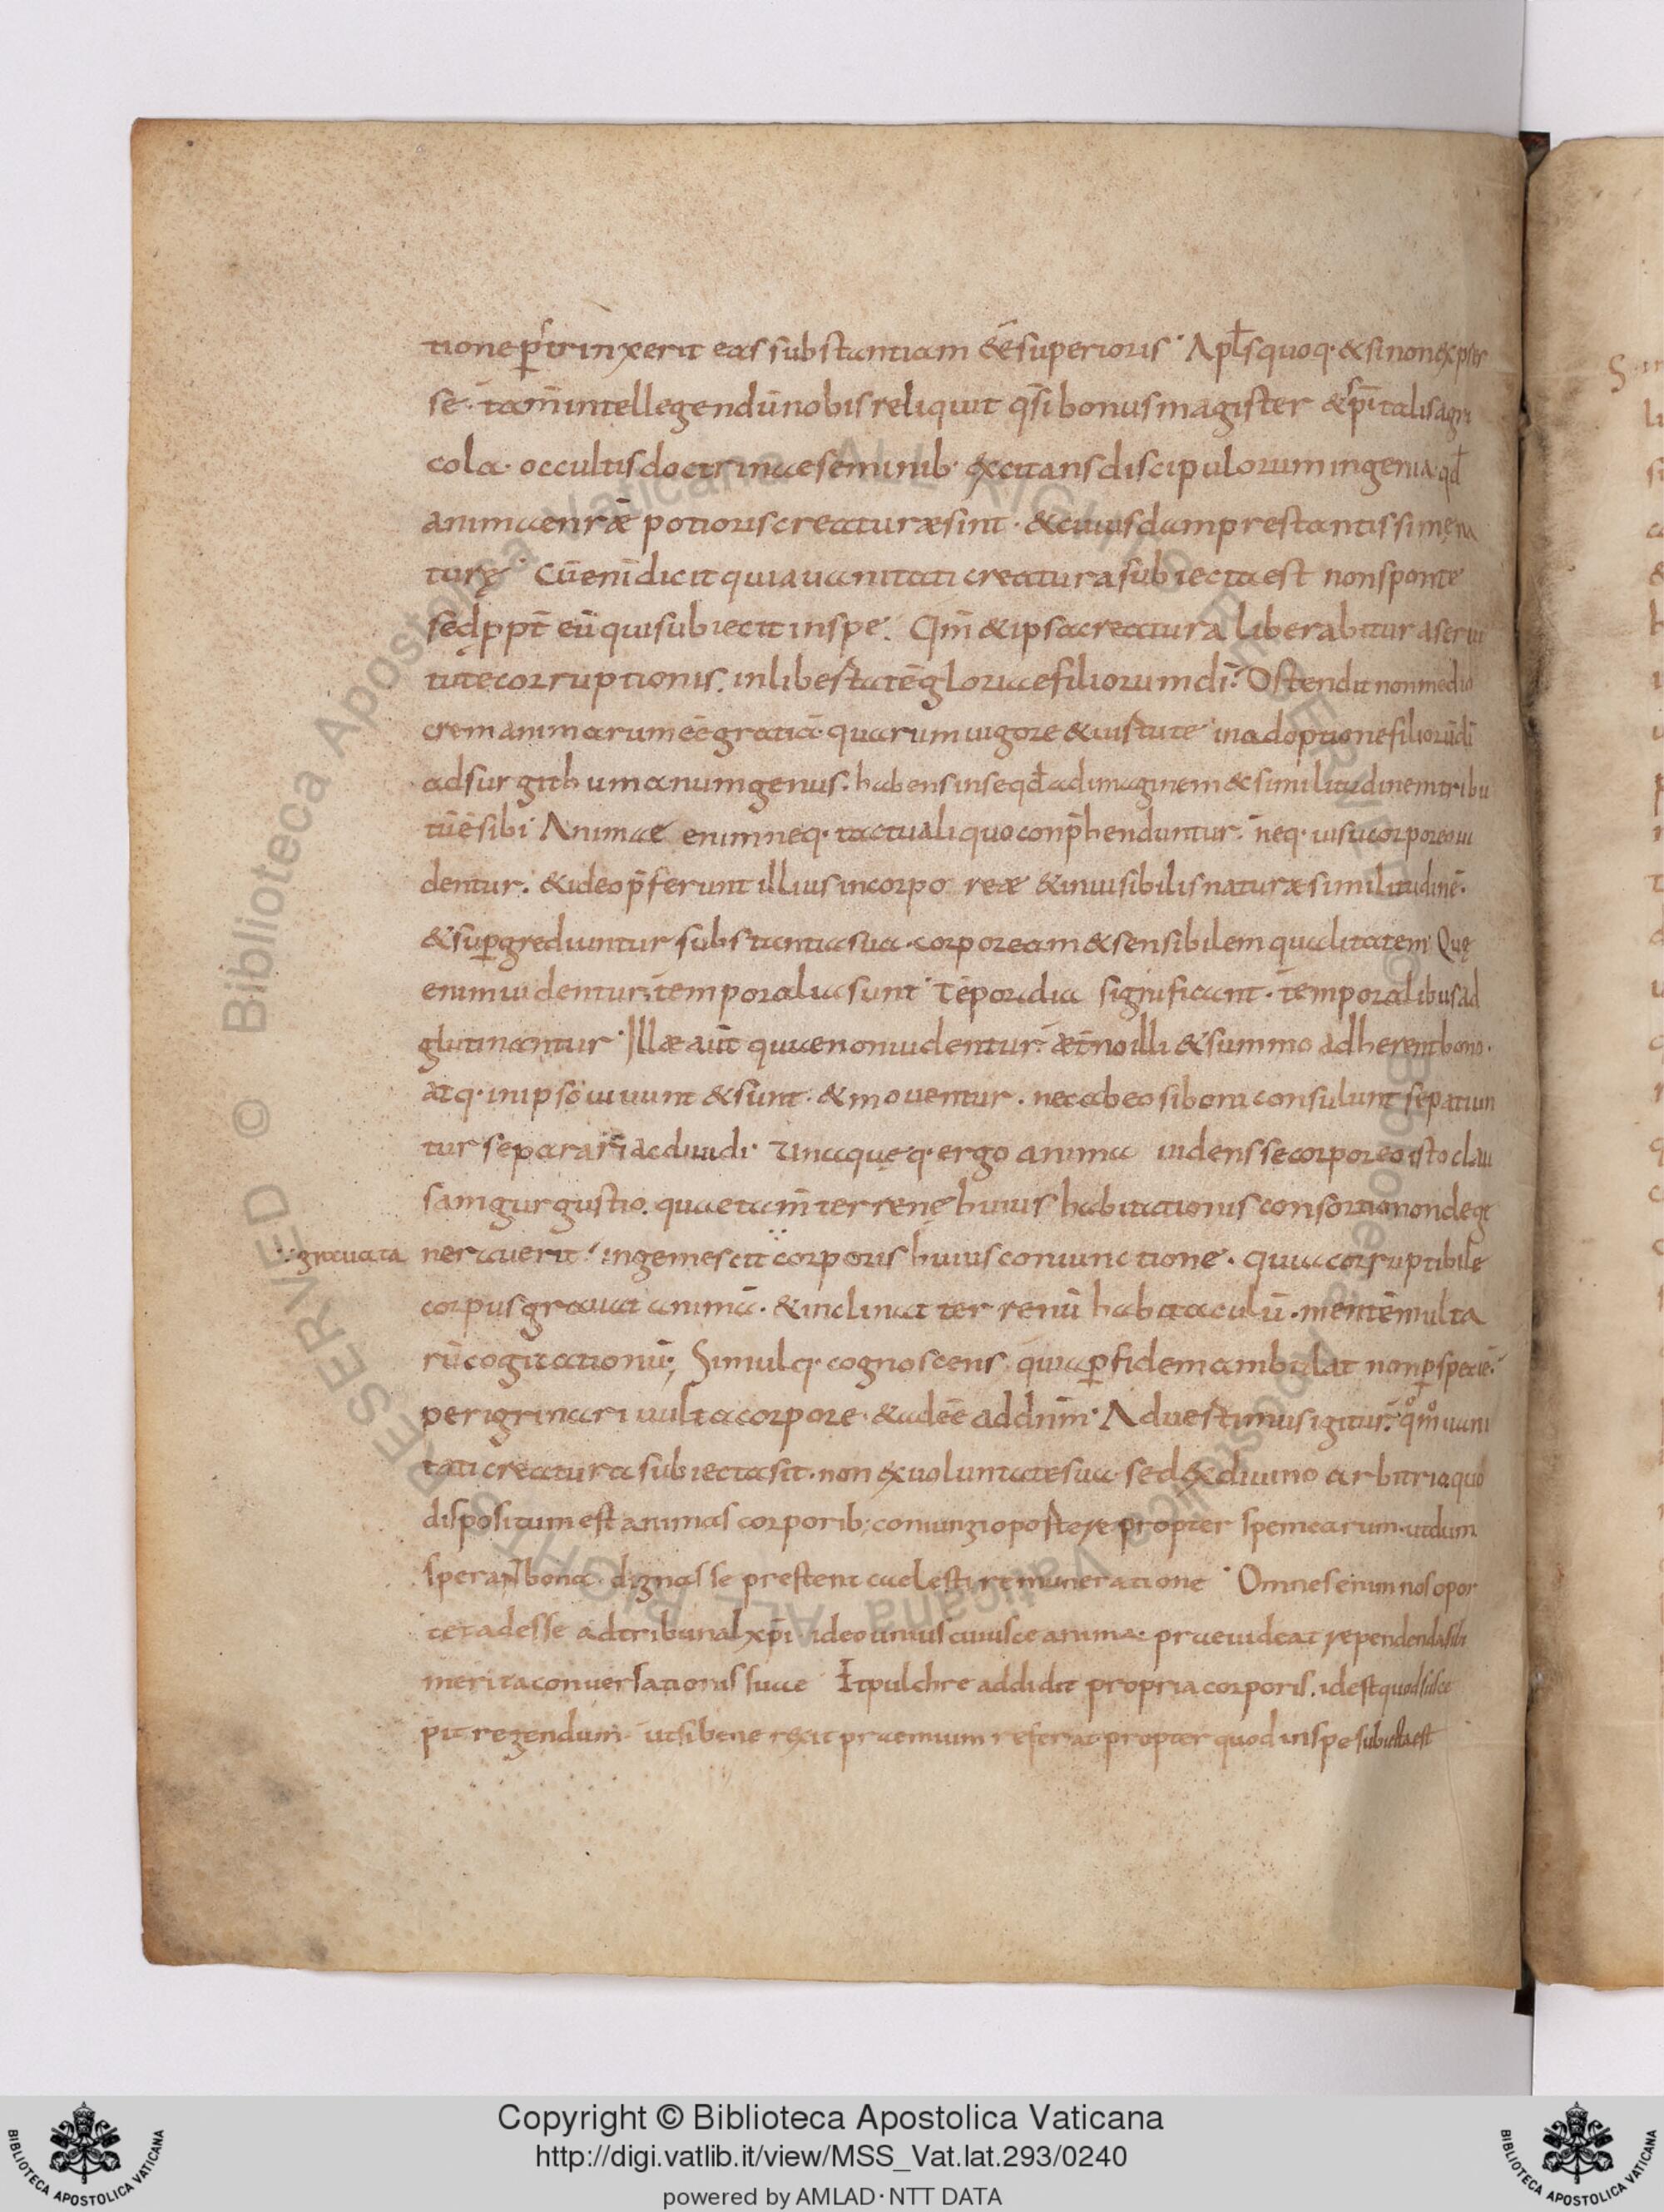 tione p̄strinxerit eas substantiam &ē superioris· Apl̄s quoq· & si non expres
se· tam̄ intellegendū nobis reliquit q̄si bonus magister & sp̄italis agri
cola· occultis doctrinae seminib· excitans discipulorum ingenia· qđ
animae nr̄æ potioris creaturæ sint· & cuiusdam prestantissimę na
turę· Cū enī dicit quia uanitati creatura subiecta est non sponte
sed ꝓpt̄ eū qui subiecit in spe. Qm̄ & ipsa creatura liberabitur a serui
tute corruptionis. in libertatē gloriae filiorum dī. Ostendit non medio
crem animarum eē gratiā· quarum uigore & uirtute in adoptione filiorū dī
adsurgit humanum genus. habens in se qđ ad imaginem & similitudinem tribu
tū ē sibi· Animae enim neq· tactu aliquo conp̄henduntur. neq· uisu corporeo ui
dentur. & ideo p̄ferunt illius incorporeæ & inuisibilis naturæ similitudinē.
& suꝑgrediuntur substantia sua· corpoream & sensibilem qualitatem· Quę
enim uidentur. temporalia sunt· Tēporalia significant. temporalibus ad
glutinantur· Illæ aut̄ quae non uidentur. æt̄no illi & summo adherent bono.
atq· in ipso uiuunt & sunt· & mouentur. nec ab eo si bona consulunt se patiun
tur separari ac diuidi· Unaqueq· ergo anima uidens se corporeo isto clau
sam gurgustio. quae tam̄ terrenę huius habitationis consortio non dege
nerauerit. ingemescit corporis huius coniunctione. quia corruptibile
grauata
corpus grauat animā. & inclinat terrenū habitaculū. mentē multa
rū cogitationū; Simulq· cognoscens quia ꝑ fidem ambulat non ꝑ speciē.
perigrinari uult a corpore. & adeē ad dn̄m· Aduertimus igitur. quom̊ uani
tati creatura subiecta sit. non ex uoluntate sua sed ex diuino arbitrio quo
dispositum est animas corporib; coniunzi oportere propter spem earum. ut dum
sperant bona· dignas se prestent caelesti remuneratione· Omnes enim nos opor
tet adesse ad tribunal xp̄i· ideo uniuscuiusce anima praeuideat rependenda sibi
merita conuersationis suae Et pulchre addidit propria corporis. id est quod susce
pit regendum· ut si bene rexit praemium referat propter quod in spe subiecta est
Copyright © Biblioteca Apostolica Vaticana
http://digi.vatlib.it/view/MSS_Vat.lat.293/0240
powered by AMLAD·NTT DATA